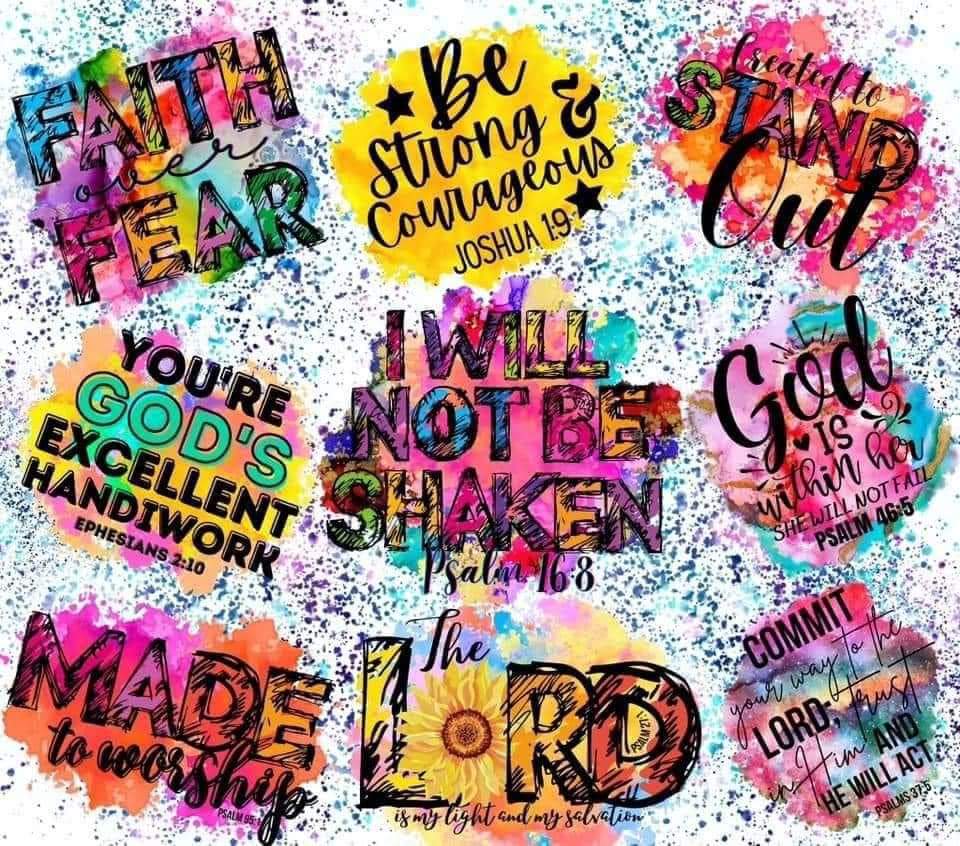 FAITH
over
FEAR
Be
Strong &
Courageous
JOSHUA 1:9
Created to
STAND
Out
YOU'RE
GOD'S
EXCELLENT
HANDIWORK
EPHESIANS 2:10
I WILL
NOT BE
SHAKEN
Psalm 16:8
God
IS
within her
SHE WILL NOT FAIL
PSALM 46:5
MADE
to worship
PSALM 95:
The
LORD
PSALM 27:1
is my light and my salvation
COMMIT
your way to the
LORD; trust
in Him AND
HE WILL ACT
PSALMS 37:5